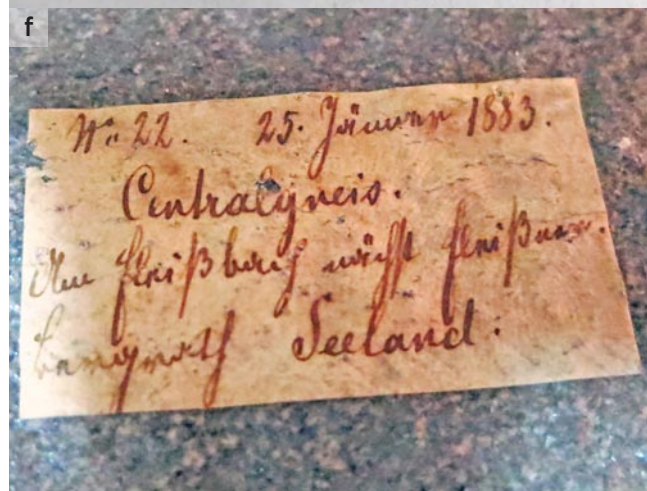 f
No 22. 25. Jänner 1883.
Centralgneis.
Am Fleißbach nächst Fleißner.
Bergrath Seeland.